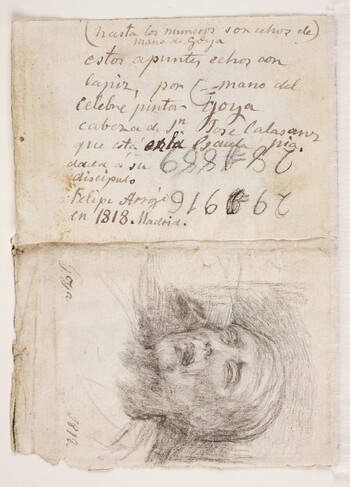 (hasta los numeros son echos de)
mano de Goya
estos apuntes echos con
lapiz, por (— mano del
celebre pintor Goya
cabeza de Sn Jose Calasanz
que está en la Escuela pia.
dada a su
discipulo
Felipe Arrojo
en 1818. Madrid.
Goya